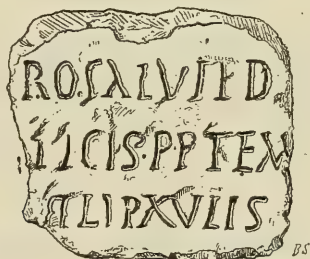 ROSALVSED
IICISPPTEM
LIPXVLIS
BS